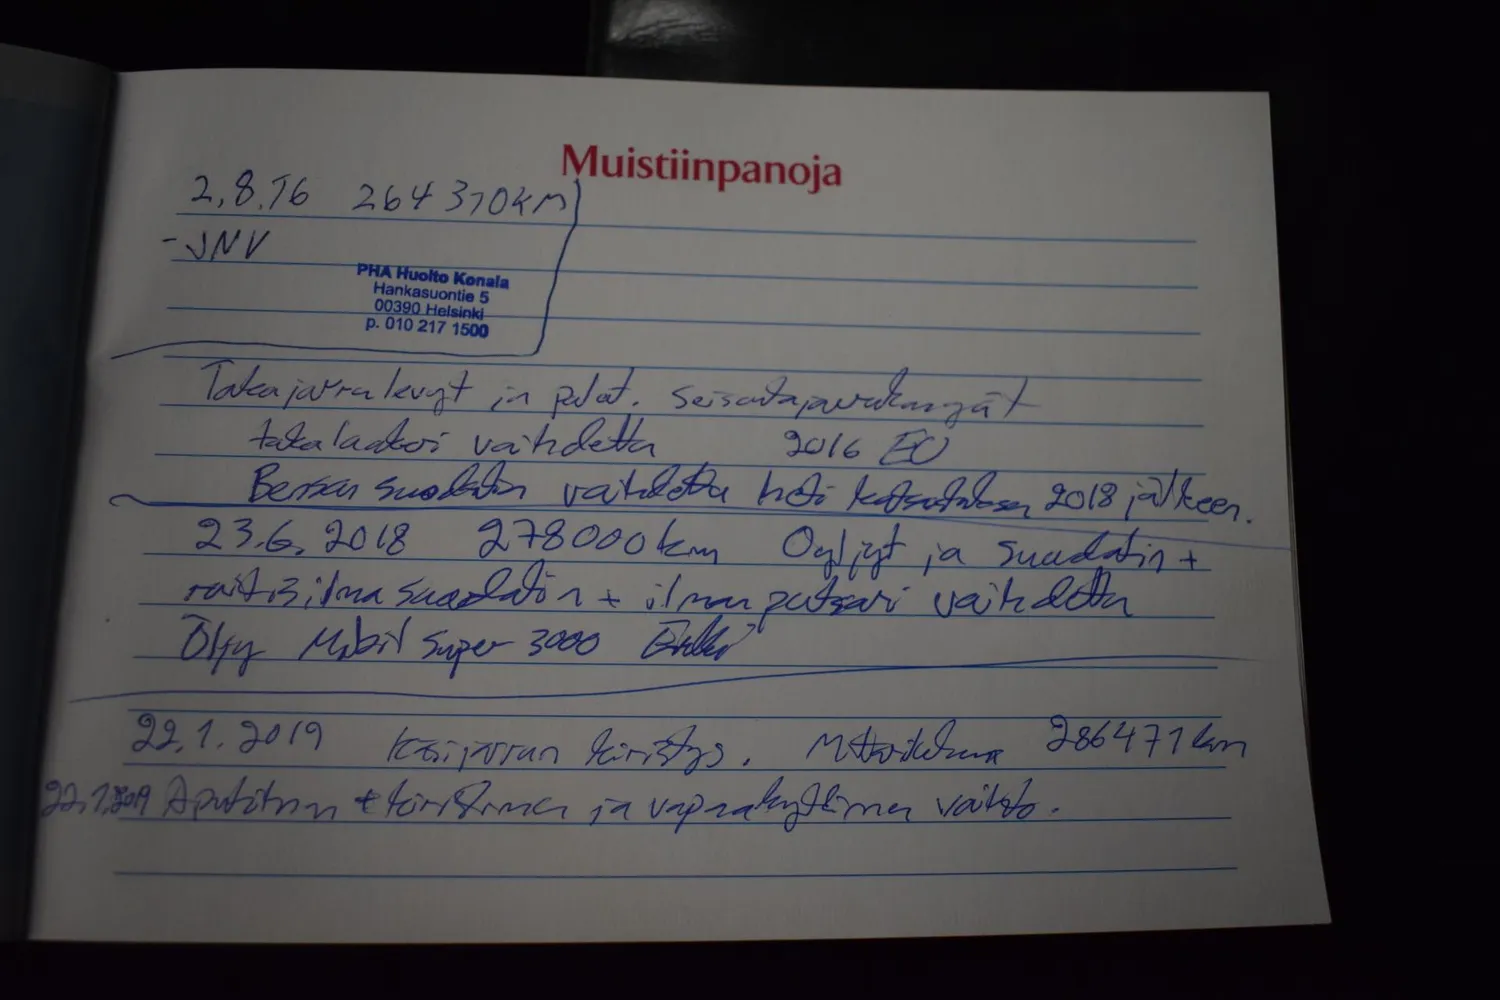 Muistiinpanoja
2,8.16 264 370 km
- JNV
PHA Huolto Konala
Hankasuontie 5
00390 Helsinki
p. 010 217 1500
Takajarrulevyt ja palat. Seisontajarrukengät
taka laakeri vaihdettu 2016 EO
Bensan suodatin vaihdettu heti katsastuksen 2018 jälkeen.
23.6. 2018 278000 km Öljyt ja suodatin +
raitisilmasuodatin + ilmanputsari vaihdettu
Öljy Mobil Super 3000
22.1.2019 Käsijarrun kiristys. Mittarilukema 286471 km
22.1.2019 Apuhihnan + kiristimen ja vapaakytkimen vaihto.